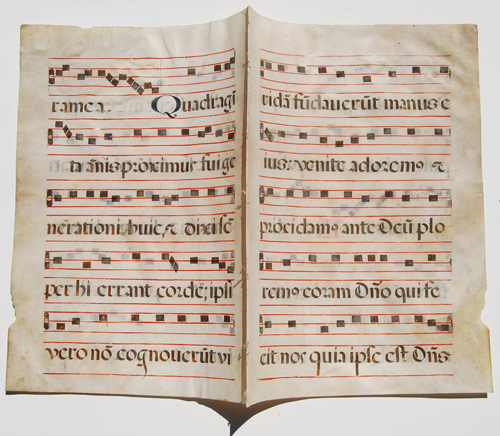 Quadragī
ta an̄is proximus fui ge
nerationi huic, & dixi sē
per hi errant corde; ipsi
vero nō cognoverūt vi
ridā fūdaverūt manus e
ius: venite adoremꝰ, &
procidamꝰ ante Deū plo
remꝰ coram Dn̄o qui fe
cit nos quia ipse est Dn̄s